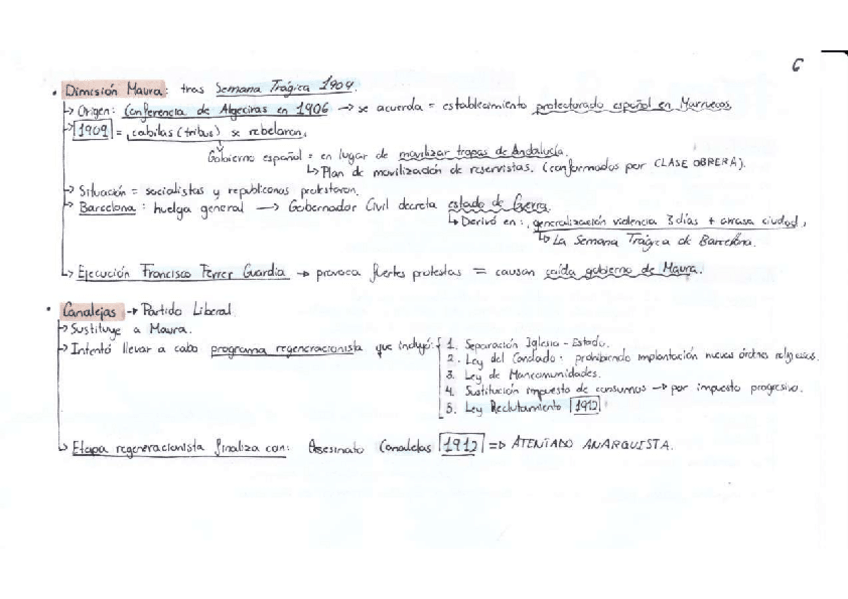 6
• Dimisión Maura: tras Semana Trágica 1909.
↳ Origen: Conferencia de Algeciras en 1906 → se acuerda = establecimiento protectorado español en Marruecos.
↳ 1909 = cabilas (tribus) se rebelaron,
Gobierno español = en lugar de movilizar tropas de Andalucía.
↳ Plan de movilización de reservistas. (conformados por CLASE OBRERA).
↳ Situación = socialistas y republicanos protestaron.
↳ Barcelona: huelga general → Gobernador Civil decreta estado de Guerra.
↳ Derivó en: generalización violencia 3 días + arrasa ciudad,
↳ La Semana Trágica de Barcelona.
↳ Ejecución Francisco Ferrer Guardia → provoca fuertes protestas = causan caída gobierno de Maura.
• Canalejas → Partido Liberal
↳ Sustituye a Maura.
↳ Intentó llevar a cabo programa regeneracionista que incluyó: { 1. Separación Iglesia - Estado.
2. Ley del Candado: prohibiendo implantación nuevas órdenes religiosas.
3. Ley de Mancomunidades.
4. Sustitución impuesto de consumos → por impuesto progresivo.
5. Ley Reclutamiento 1912
↳ Etapa regeneracionista finaliza con: Asesinato Canalejas 1912 => ATENTADO ANARQUISTA.